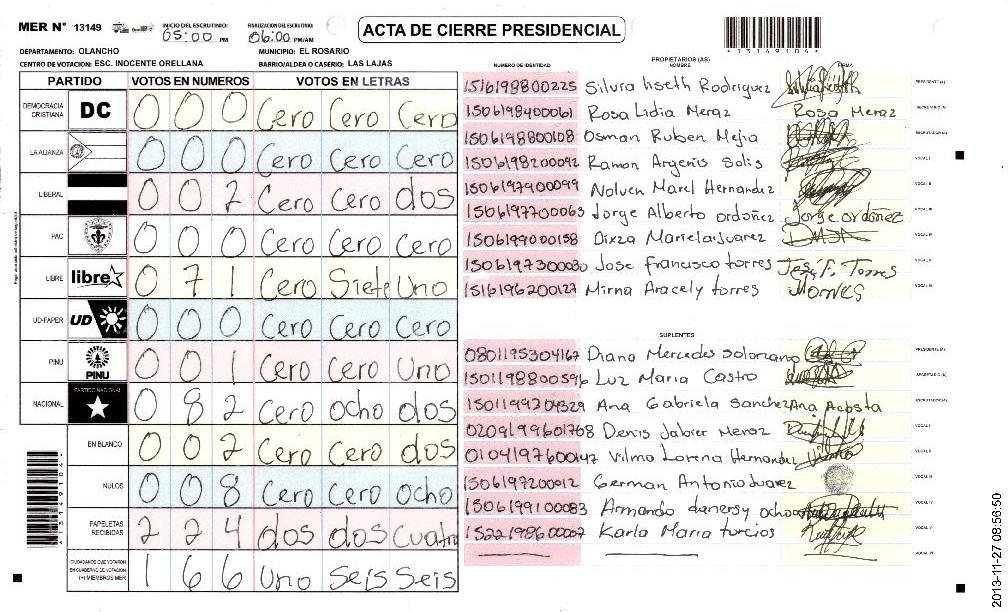 MER N° 13149 INICIO DEL ESCRUTINIO: 05:00 PM FINALIZACION DEL ESCRUTINIO: 06:00 PM/AM ACTA DE CIERRE PRESIDENCIAL
*13149104*
DEPARTAMENTO: OLANCHO MUNICIPIO: EL ROSARIO
CENTRO DE VOTACION: ESC. INOCENTE ORELLANA BARRIO/ALDEA O CASERIO: LAS LAJAS
PARTIDO VOTOS EN NUMEROS VOTOS EN LETRAS
DEMOCRACIA CRISTIANA DC 0 0 0 Cero Cero Cero
LA ALIANZA 0 0 0 Cero Cero Cero
LIBERAL 0 0 2 Cero Cero dos
PAC 0 0 0 Cero Cero Cero
LIBRE libre 0 7 1 Cero Siete Uno
UD-FAPER UD 0 0 0 Cero Cero Cero
PINU PINU 0 0 1 Cero Cero Uno
NACIONAL PARTIDO NACIONAL 0 8 2 Cero ocho dos
EN BLANCO 0 0 2 Cero Cero dos
NULOS 0 0 8 Cero Cero ocho
PAPELETAS RECIBIDAS 2 2 4 dos dos Cuatro
CIUDADANOS QUE VOTARON EN CUADERNO DE VOTACION (+) MIEMBROS MER 1 6 6 Uno Seis Seis
*13149104*
PROPIETARIOS (AS)
NUMERO DE IDENTIDAD NOMBRE FIRMA
1516198800225 Silvia liseth Rodriguez PRESIDENTE (A)
1506198400061 Rosa Lidia Meraz Rosa Meraz SECRETARIO (A)
1506198800108 Osman Ruben Mejia ESCRUTADOR (A)
1506198200092 Ramon Argenis Solis VOCAL I
1506197900099 Nolven Marel Hernandez VOCAL II
1506197700063 Jorge Alberto ordoñez Jorge ordoñez VOCAL III
1506199000158 Dixza Mariela Juarez VOCAL IV
1506197300030 Jose francisco torres José F. Torres VOCAL V
1516196200127 Mirna Aracely torres VOCAL VI
SUPLENTES
0801195304167 Diana Mercedes Solorzano PRESIDENTE (A)
1501198800596 Luz Maria Castro SECRETARIO (A)
1501199204329 Ana Gabriela Sanchez Ana Acosta ESCRUTADOR (A)
0209199601768 Denis Jabier Meraz VOCAL I
0104197600147 Vilma Lorena Hernandez VOCAL II
1506197200012 German Antonio Juarez VOCAL III
1506199100083 Armando ochoa VOCAL IV
1522198600007 Karla Maria turcios VOCAL V
VOCAL VI
2013-11-27 08:56:50